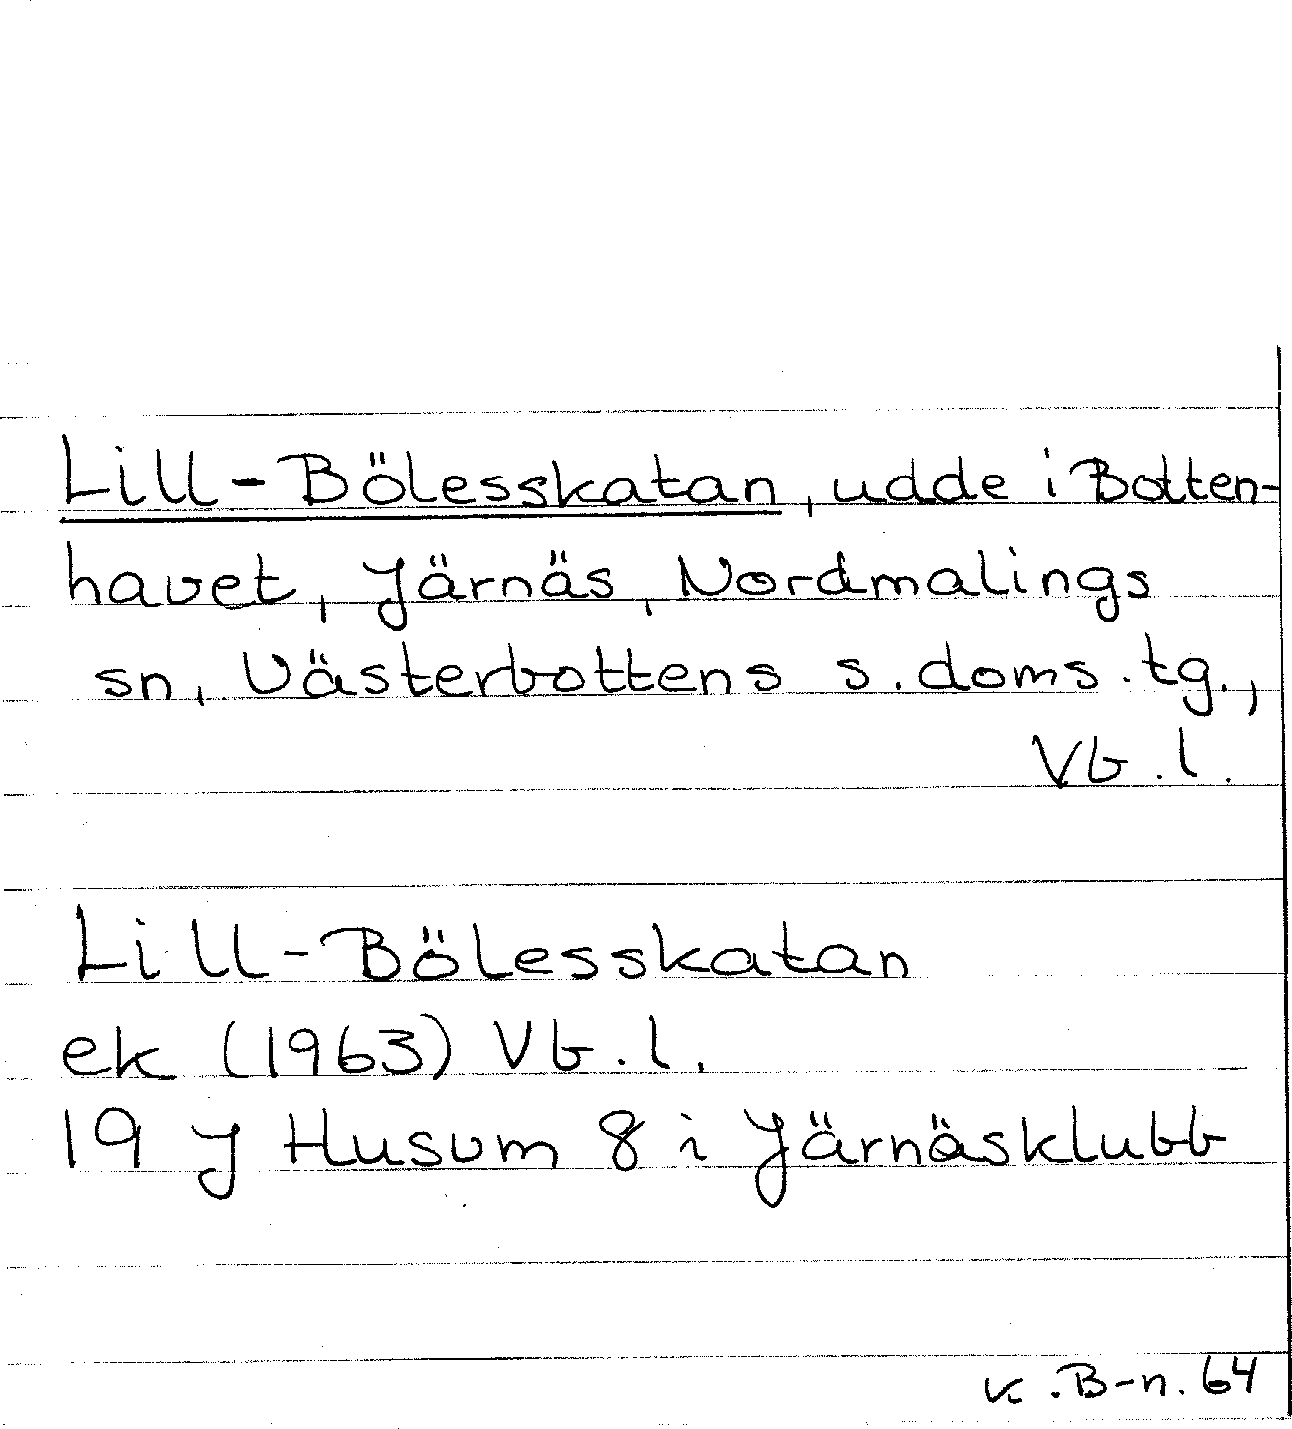 Lill-Bölesskatan, udde i Botten-
havet, Järnäs, Nordmalings
sn, Västerbottens s. doms. tg.,
Vb. l.
Lill-Bölesskatan
ek (1963) Vb. l.
19 J Husum 8 i Järnäsklubb
K. B-n. 64